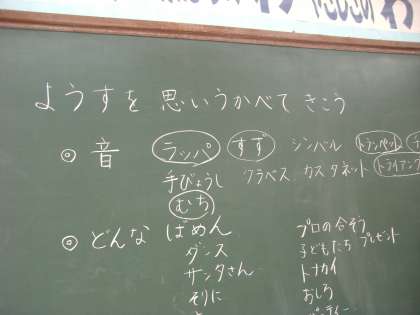 ようすを 思いうかべて きこう
◎ 音 ラッパ すず シンバル トランペット
手びょうし クラベス カスタネット トライアング
むち
◎ どんな ばめん プロの合そう
ダンス 子どもたち プレゼント
サンタさん トナカイ
そりに おしろ